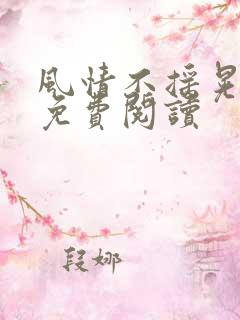 風情不採
免費閱讀
段娜